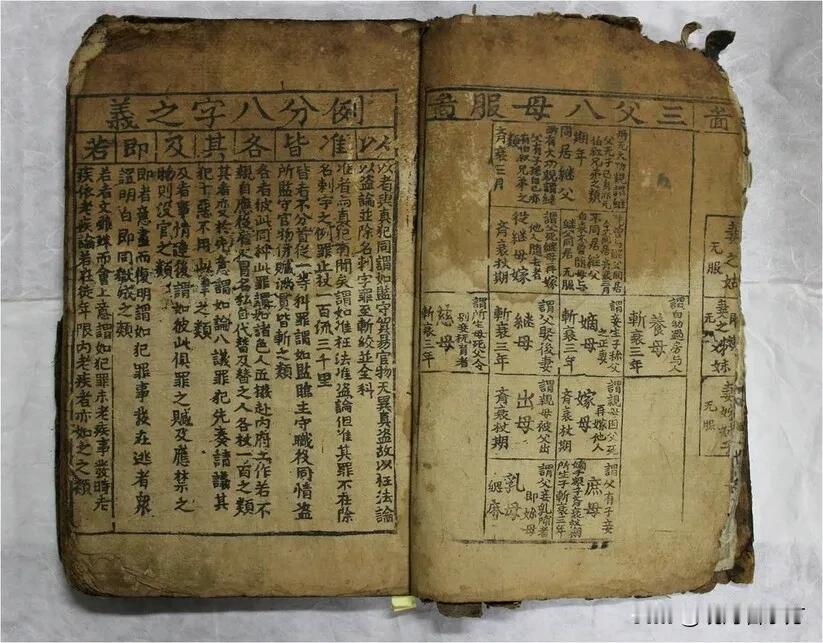 啚
妾之姑
无服
无服
三父八母服啚
兩无大功親謂繼
父无子己身亦无
伯叔兄弟之類
期年
同居繼父
兩有大功親謂繼
父有子孫自己亦
有伯叔兄弟之類
齊衰三月
不同居繼父
繼父同居 无服
謂父死繼母再嫁
他人隨去者
從繼母嫁
齊衰杖期
謂自幼過房与人
養母
斬衰三年
謂妾生子称父
之正妻
嫡母
斬衰三年
謂父娶後妻
繼母
斬衰三年
謂所生母死父令
別妾撫育者
慈母
斬衰三年
謂親母因父死
再嫁他人
嫁母
齊衰杖期
謂親母被父出
出母
齊衰杖期
謂父有子妾
庶母
嫡子衆子齊衰杖期
所生子斬衰三年
謂父妾乳哺者
即妳母
乳母
緦麻
例分八字之義
以
准
皆
各
其
及
即
若
以者與真犯同謂如監守貿易官物无異真盗故以枉法論
以盗論並除名刺字罪至斬絞並全科
准者與真犯有間矣謂如准枉法准盗論但准其罪不在除
名刺字之例罪止杖一百流三千里
皆者不分首從一等科罪謂如監臨主守職役同情盗
所監守官物併贓滿貫皆斬之類
各者彼此同科此罪謂如諸色人匠撥赴内府工作若不
親自應役雇人冒名私自代替及替之人各杖一百之類
其者变於先意謂如論八議罪犯先奏請議其
犯十惡不用此律之類
及者事情連後謂如彼此俱罪之贓及應禁之
物則没官之類
即者意盡而復明謂如犯罪事發在逃者衆
證明白即同獄成之類
若者文雖殊而會上意謂如犯罪未老疾事發時老
疾依老疾論若在徒年限内老疾者亦如之之類